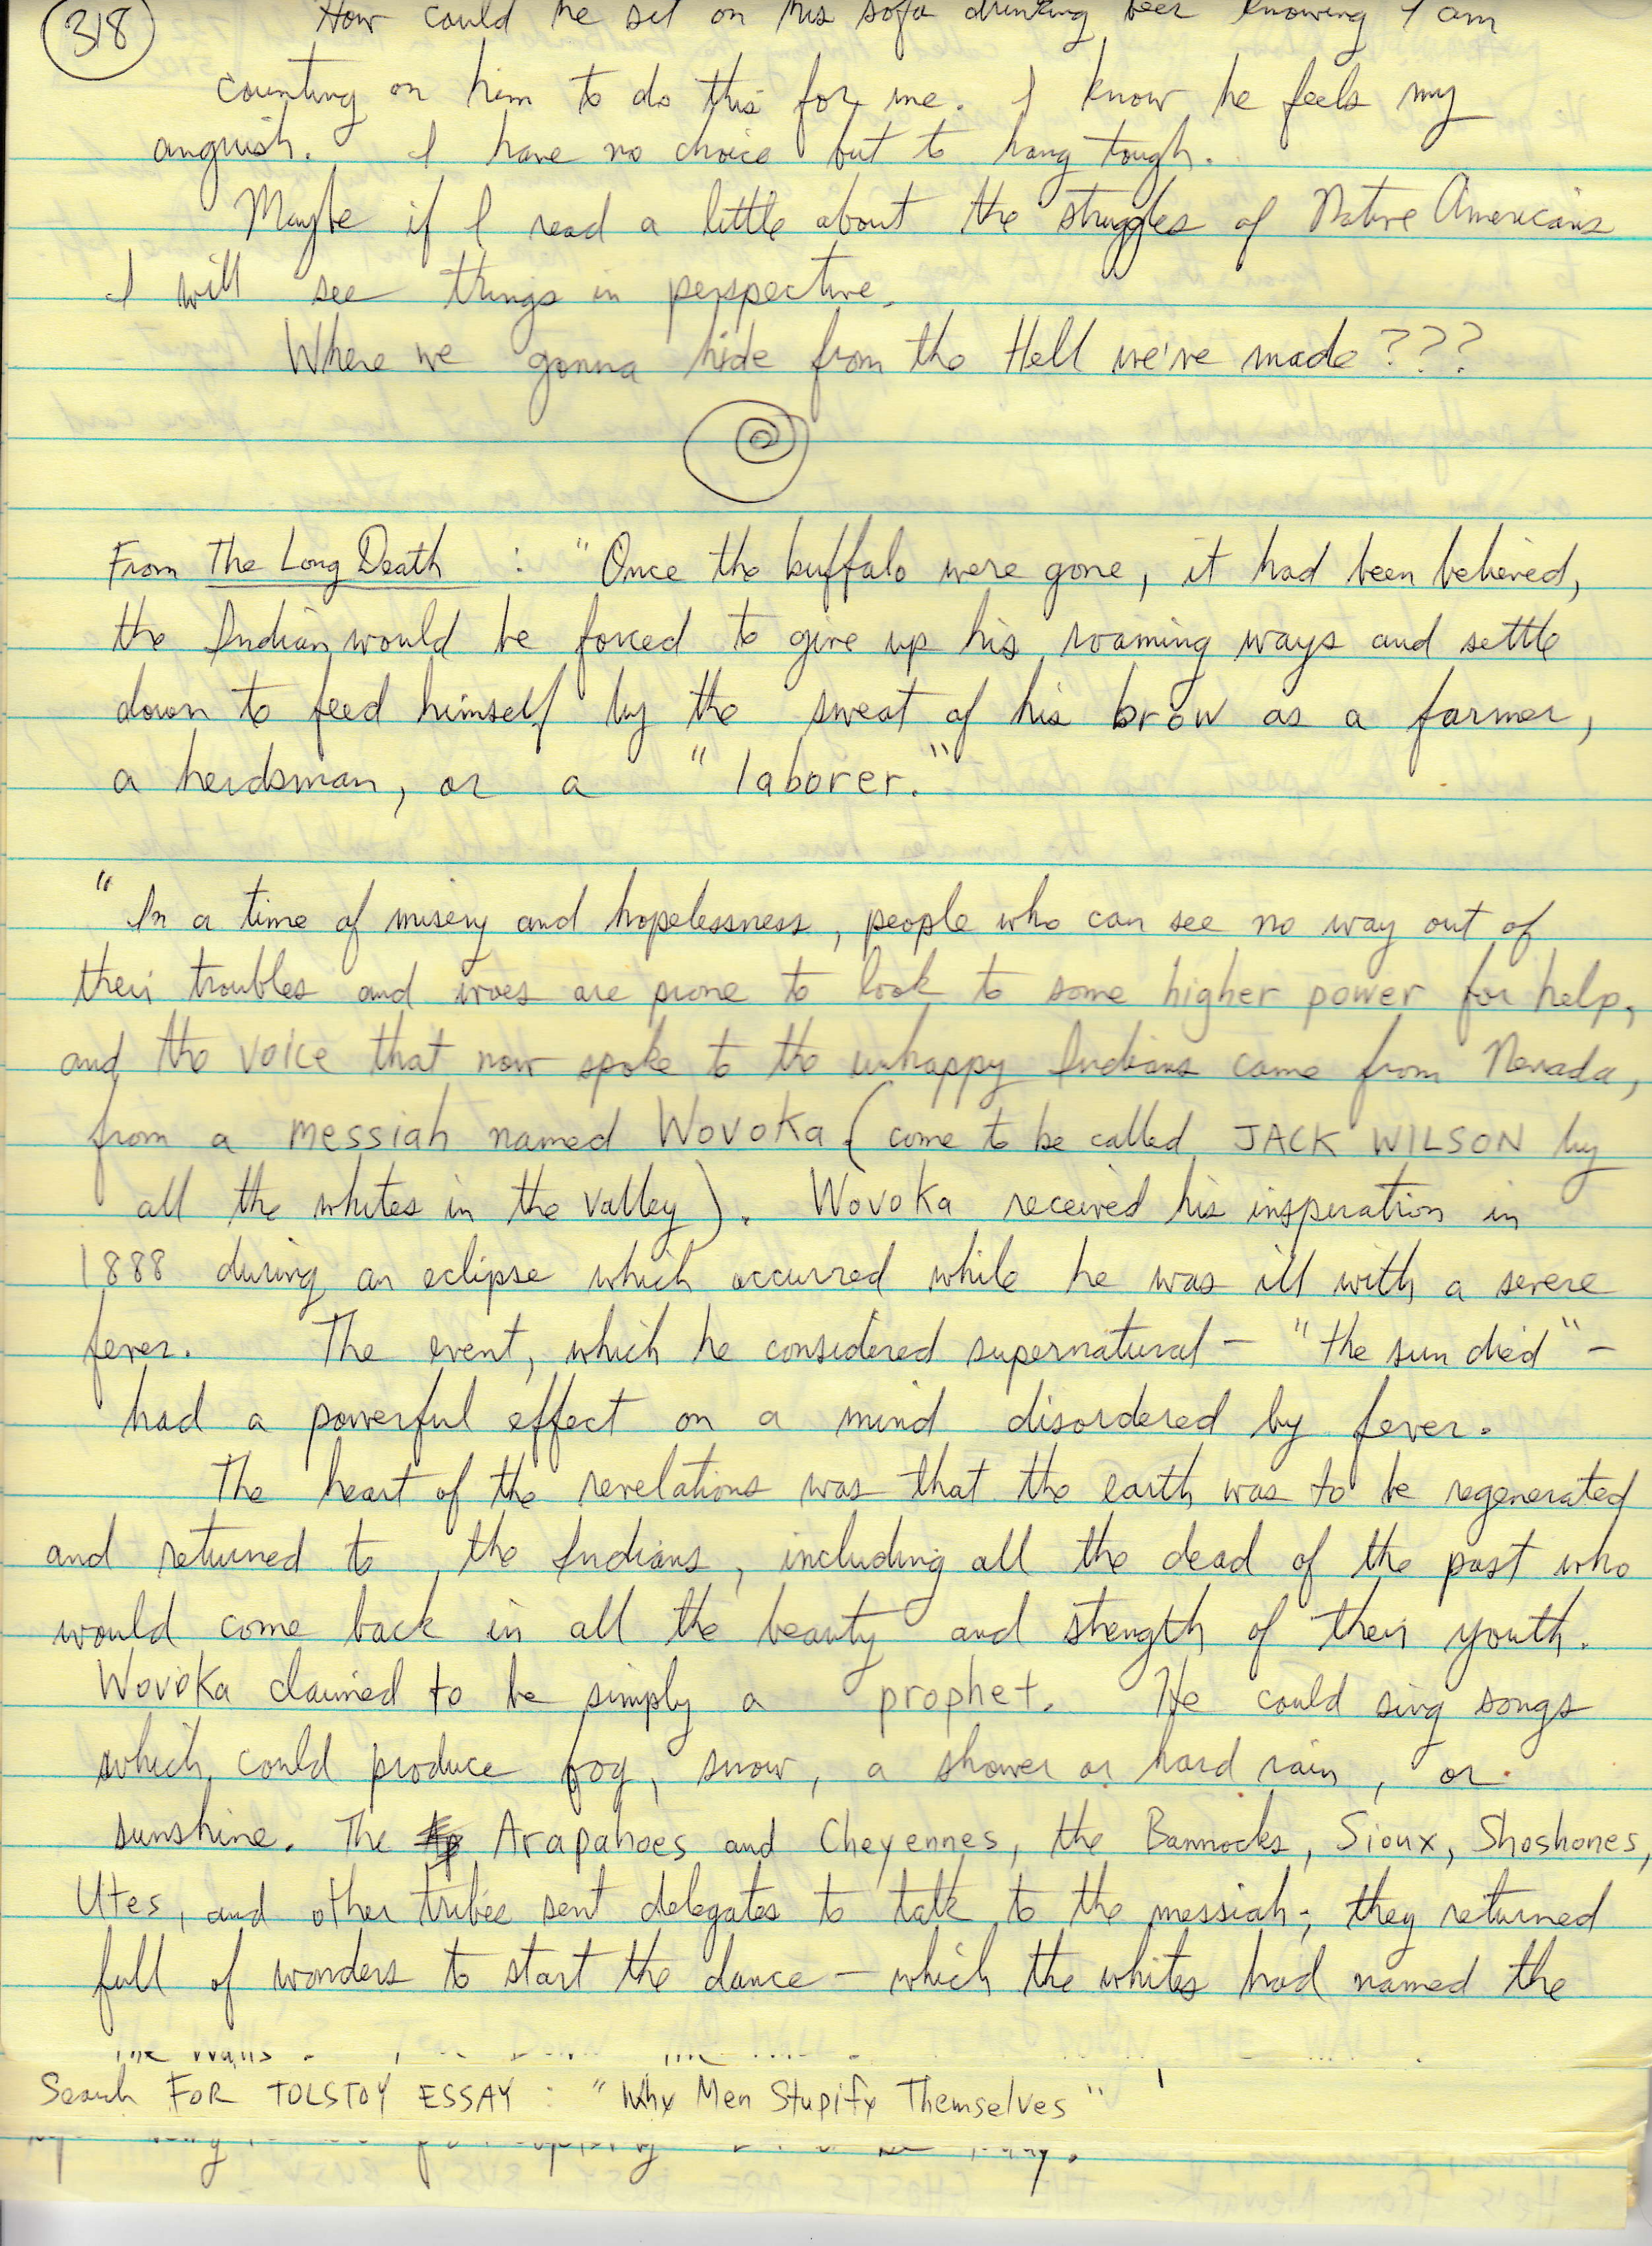 318
How could he sit on his sofa drinking beer knowing I am
counting on him to do this for me. I know he feels my
anguish. I have no choice but to hang tough.
Maybe if I read a little about the struggles of Native Americans
I will see things in perspective.
Where we gonna hide from the Hell we've made???
From The Long Death : "Once the buffalo were gone, it had been believed,
the Indian would be forced to give up his roaming ways and settle
down to feed himself by the sweat of his brow as a farmer,
a herdsman, or a "laborer."
"In a time of misery and hopelessness, people who can see no way out of
their troubles and woes are prone to look to some higher power for help,
and the voice that now spoke to the unhappy Indians came from Nevada,
from a messiah named Wovoka (come to be called JACK WILSON by
all the whites in the valley). Wovoka received his inspiration in
1888 during an eclipse which occurred while he was ill with a severe
fever. The event, which he considered supernatural - "the sun died" -
had a powerful effect on a mind disordered by fever.
The heart of the revelations was that the earth was to be regenerated
and returned to the Indians, including all the dead of the past who
would come back in all the beauty and strength of their youth.
Wovoka claimed to be simply a prophet. He could sing songs
which could produce fog, snow, a shower or hard rain, or
sunshine. The Arapahoes and Cheyennes, the Bannocks, Sioux, Shoshones,
Utes, and other tribes sent delegates to talk to the messiah; they returned
full of wonders to start the dance - which the whites had named the
Search FOR TOLSTOY ESSAY : "Why Men Stupify Themselves"